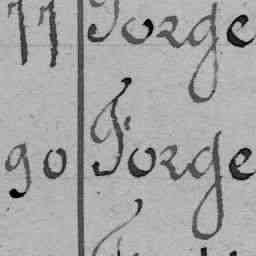 77 Forge
90 Forge